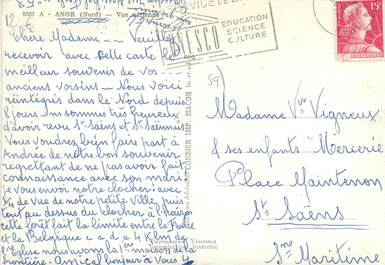 9003 A - ANOR (Nord) - Vue aérienne
UNESCO
EDUCATION
SCIENCE
CULTURE
15F
Chère Madame - Veuillez
recevoir avec belle carte le
meilleur souvenir de vos
anciens voisins - Nous voici
réintégrés dans le Nord depuis
jours. Nous sommes très heureux
d'avoir revu St-Saëns et St-Saënnais
Vous voudrez bien faire part à
Andrée de notre bon souvenir
regrettant de ne pas avoir fait
connaissance avec son mari
Je vous envoi notre clocher avec
de vue de notre petite ville, puis
tout au dessus du clocher à l'horizon
cette forêt fait la limite entre la France
et la Belgique - à 4 klm de
l'Eglise nous avons la 1ère maison de la
frontière. Amical bonjour à vous
COMBIER IMP. MACON
59
Madame Vve Vigneux
& ses enfants "Mercerie
Place Maintenon
St Saëns
Sne Maritime